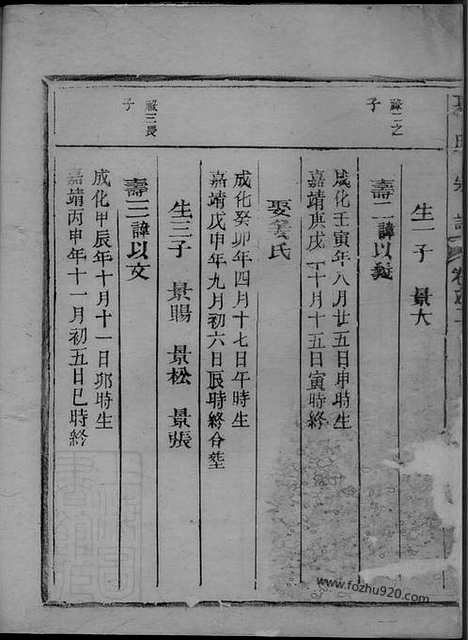 生一子　景大
祿二之子
壽二諱以義
成化壬寅年八月廿五日申時生
嘉靖庚戌年十月十五日寅時終
娶姜氏
成化癸卯年四月十七日午時生
嘉靖戊申年九月初六日辰時終合塋
生三子　景暘　景松　景張
祿三長子
壽三諱以文
成化甲辰年十月十一日卯時生
嘉靖丙申年十一月初五日巳時終
www.fozhu920.com